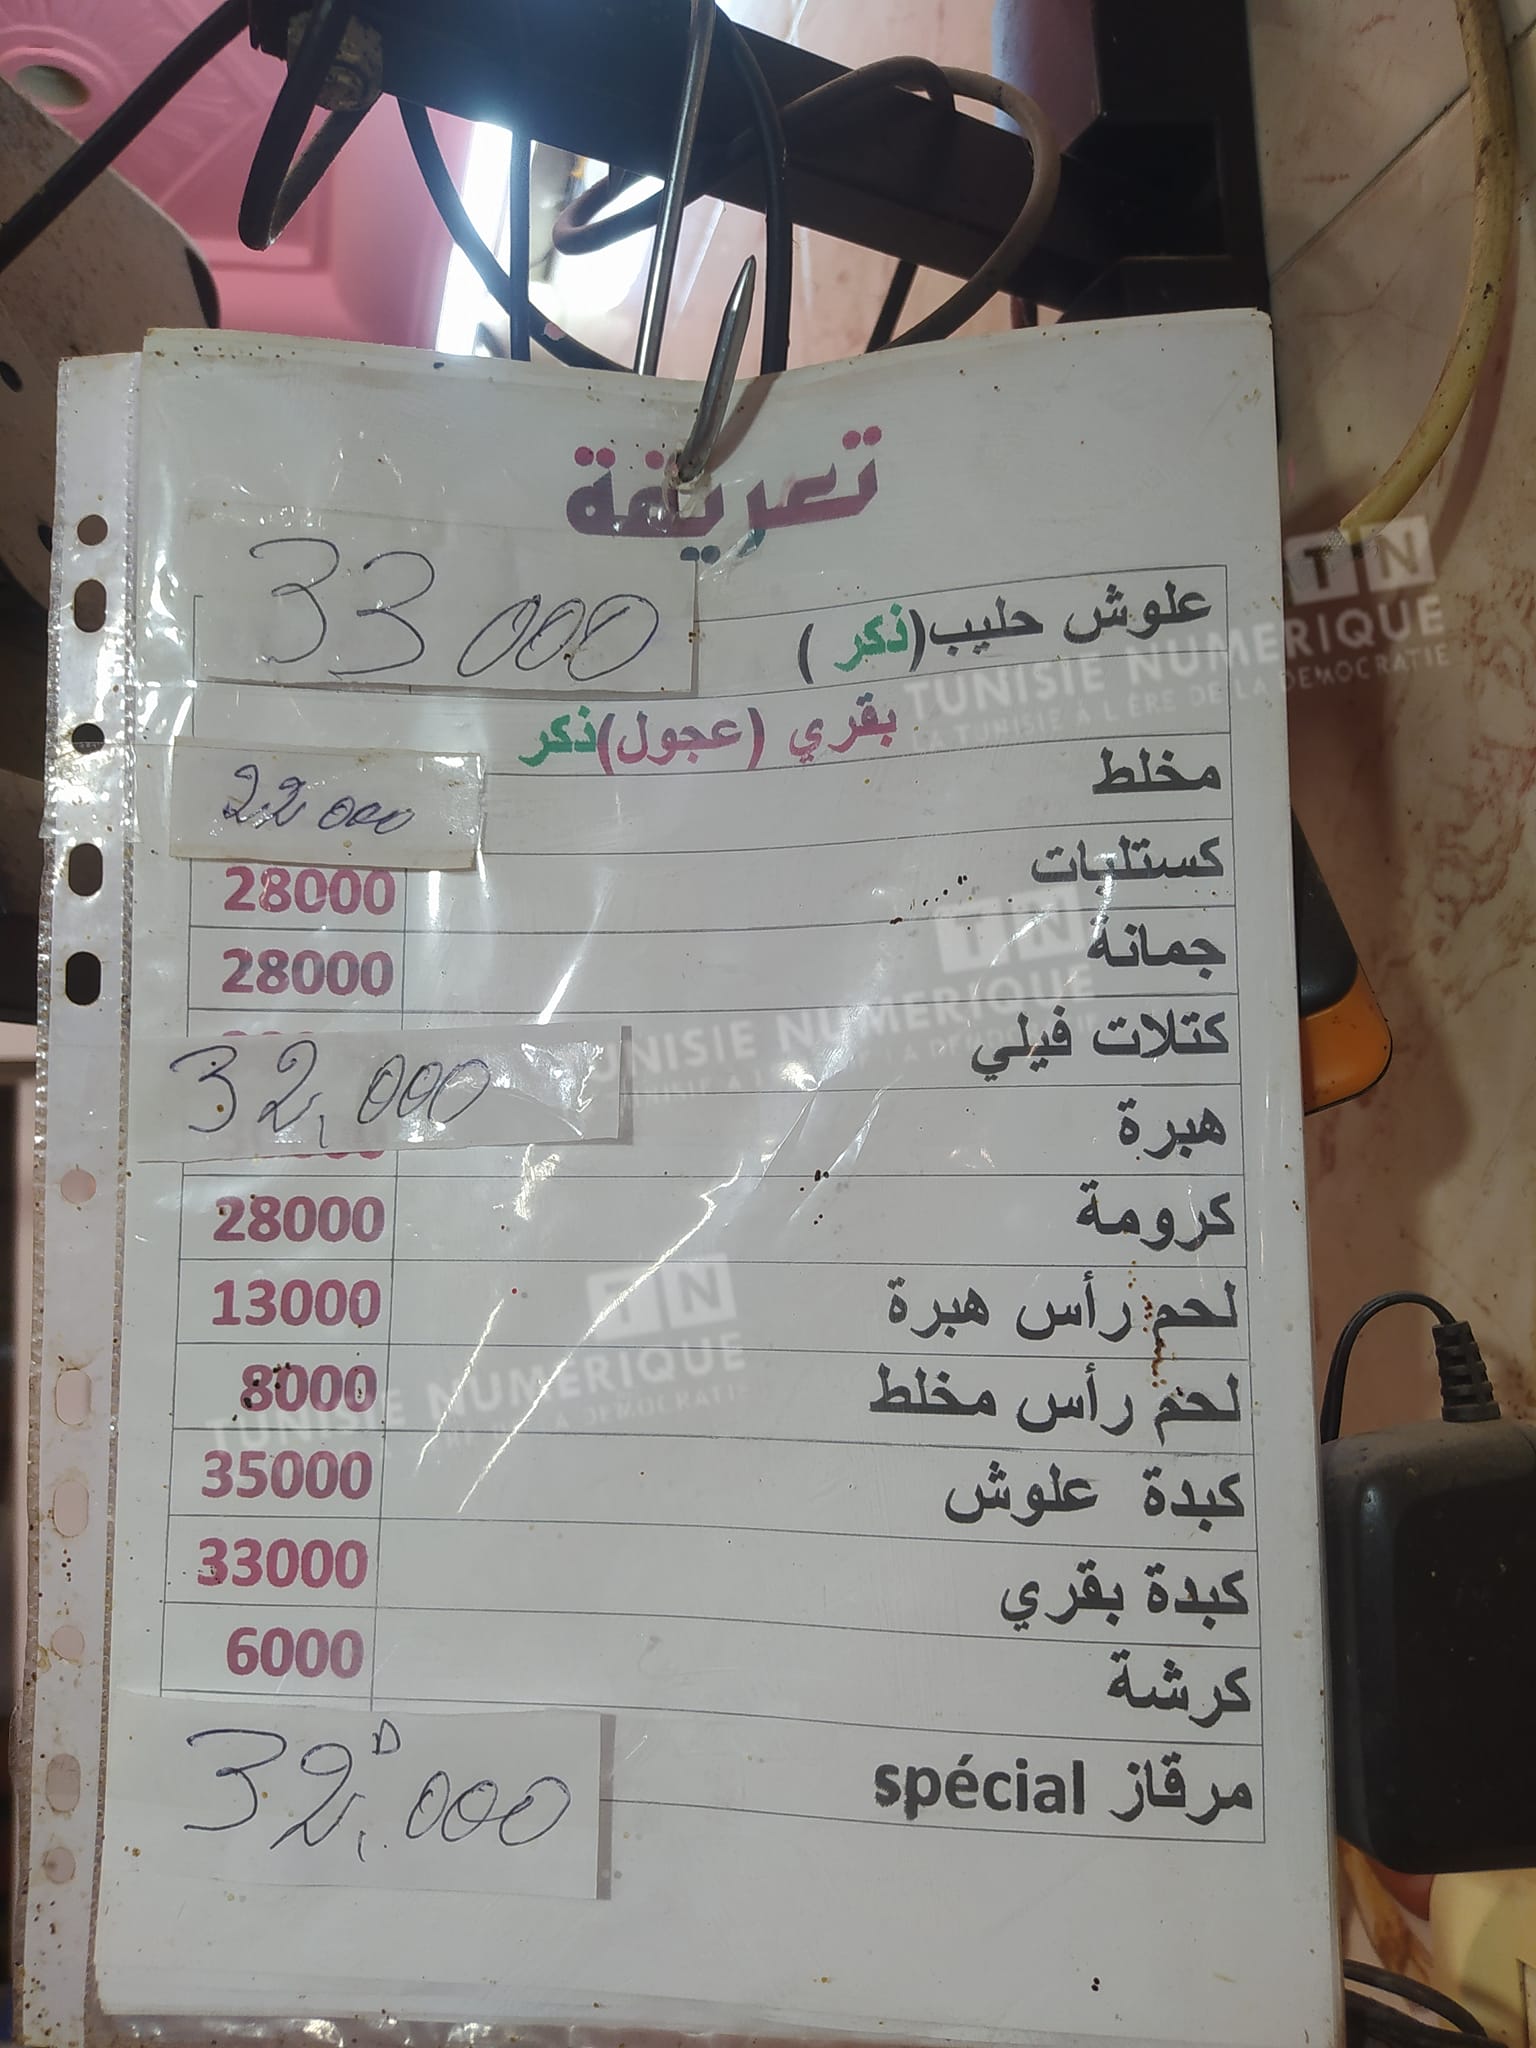 تعريفة
علوش حليب(ذكر) 33000
بقري (عجول)ذكر
مخلط 22000
كستلبات 28000
جمانة 28000
كتلات فيلي
هبرة 32,000
كرومة 28000
لحم رأس هبرة 13000
لحم رأس مخلط 8000
كبدة علوش 35000
كبدة بقري 33000
كرشة 6000
مرقاز spécial 32,000 D
TN
TUNISIE NUMERIQUE
LA TUNISIE À L'ÈRE DE LA DEMOCRATIE
TN
TUNISIE NUMERIQUE
TN
TUNISIE NUMERIQUE